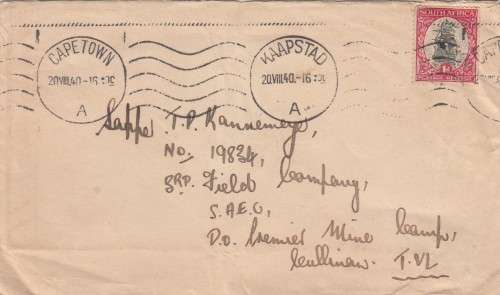 SOUTH AFRICA
CAPETOWN
20.VIII.40.-16
A
KAAPSTAD
20.VIII.40.-16
A
Sappe. T.P. Kannemeyer,
No. 19834,
3RD. Field Company,
S.A.E.C,
P.O. Premier Mine Camp,
Cullinan. TVL